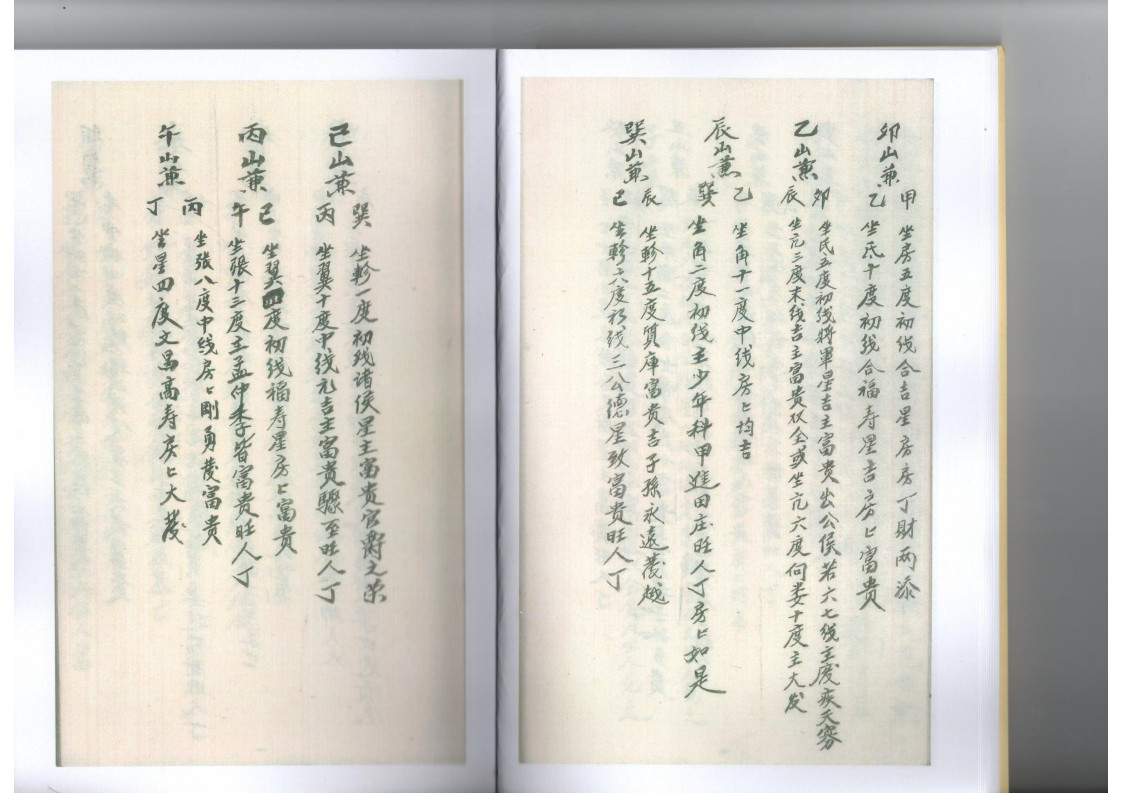 卯山兼
甲 坐房五度初线合吉星房房丁財两添
乙 坐氐十度初线合福寿星吉房〻富贵
乙山兼
卯 坐氐五度初线將軍星吉主富贵出公侯若六七线主废疾夭穷
辰 坐亢三度末线吉主富贵双全或坐亢六度向娄十度主大发
辰山兼
乙 坐角十一度中线房〻均吉
巽 坐角二度初线主少年科甲進田庄旺人丁房〻如是
巽山兼
辰 坐軫十五度質庫富贵吉子孫永遠發越
巳 坐軫六度初线三公德星致富贵旺人丁
巳山兼
巽 坐軫一度初线诸侯星主富贵官爵之荣
丙 坐翼十度中线元吉主富贵驟至旺人丁
丙山兼
巳 坐翼四度初线福寿星房〻富贵
午 坐張十三度主孟仲季皆富贵旺人丁
午山兼
丙 坐张八度中线房〻剛勇發富贵
丁 坐星四度文昌高寿房〻大發